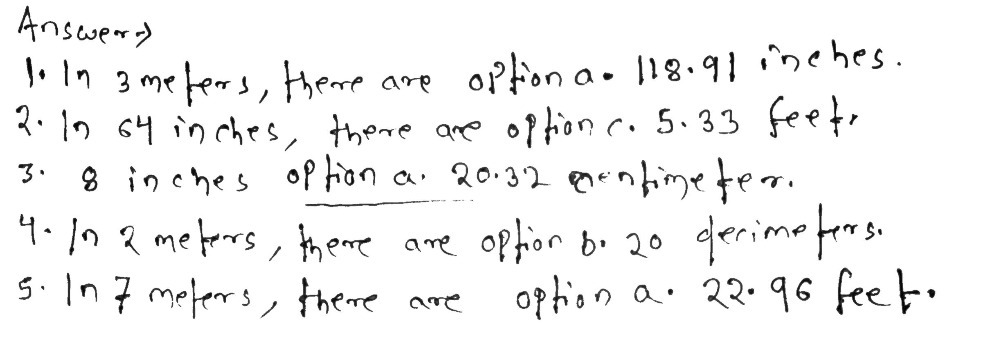 Answer→
1. In 3 meters, there are option a. 118.91 inches.
2. In 64 inches, there are option c. 5.33 feet.
3. 8 inches option a. 20.32 centimeter.
4. In 2 meters, there are option b. 20 decimeters.
5. In 7 meters, there are option a. 22.96 feet.